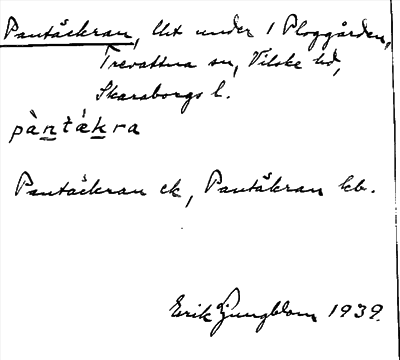 Pantåckran, Ut under 1 Ploggården,
Trevattna sn, Vilske hd,
Skaraborgs l.
pàntákra
Pantåckran ek, Pantåkran kb.
Erik Ljungblom 1939.